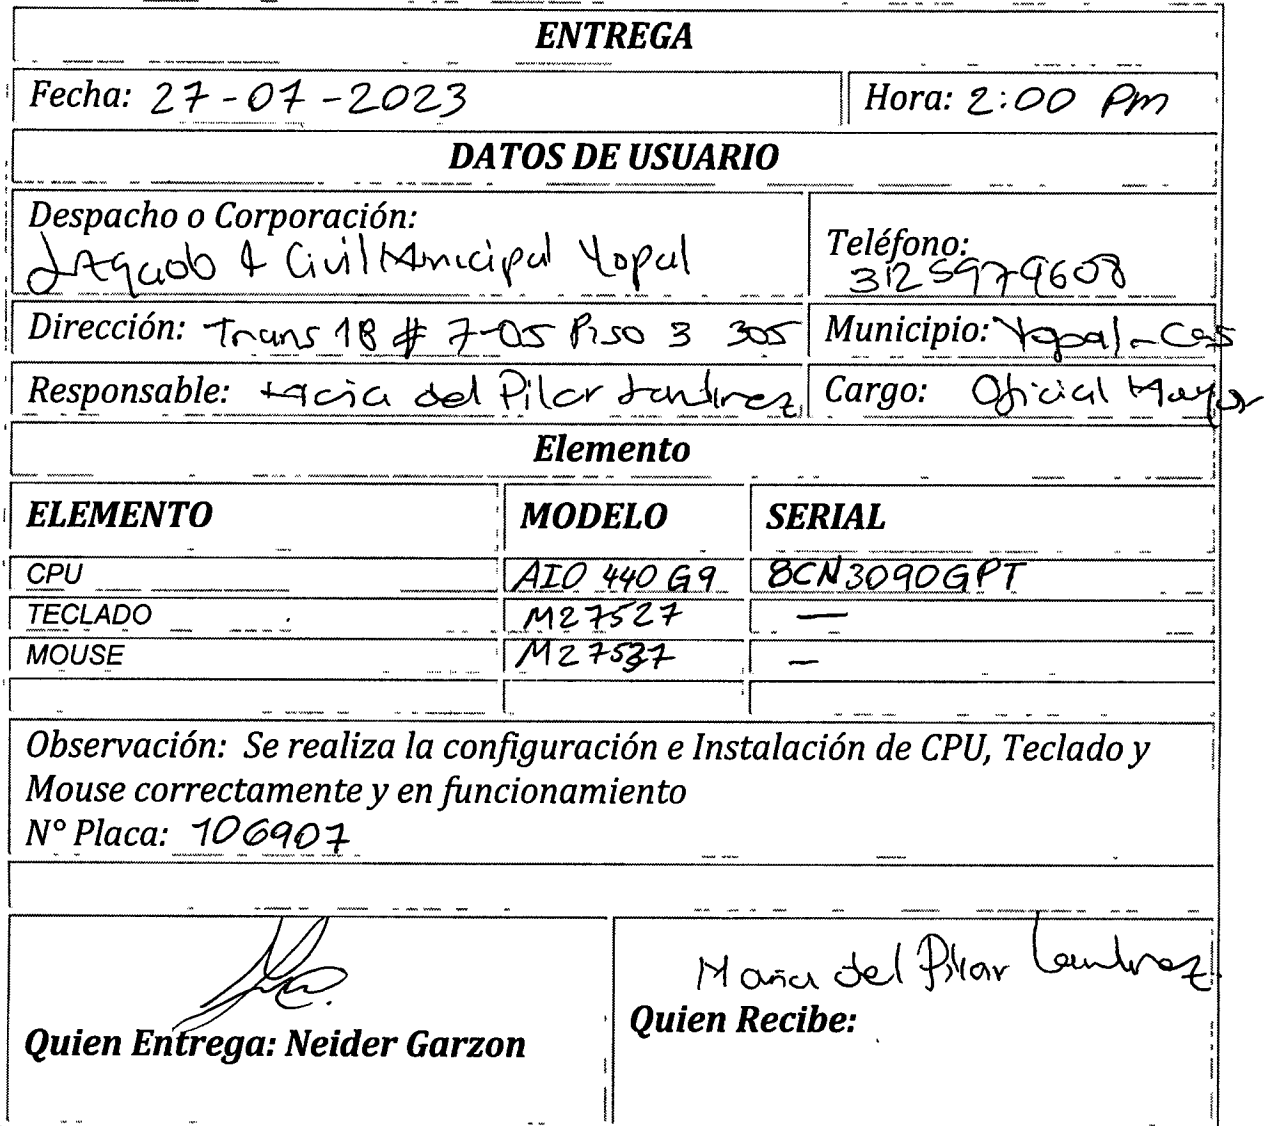 ENTREGA
Fecha: 27-07-2023 Hora: 2:00 Pm
DATOS DE USUARIO
Despacho o Corporación:
Juzgado 4 Civil Municipal Yopal
Teléfono:
3125979608
Dirección: Trans 18 # 7-05 Piso 3 305 Municipio: Yopal - Cas
Responsable: Maria del Pilar Cargo: Oficial Mayor
Elemento
ELEMENTO MODELO SERIAL
CPU AIO 440 G9 8CN3090GPT
TECLADO M27527 —
MOUSE M27537 —
Observación: Se realiza la configuración e Instalación de CPU, Teclado y
Mouse correctamente y en funcionamiento
N° Placa: 106907
Maria del Pilar
Quien Entrega: Neider Garzon
Quien Recibe: